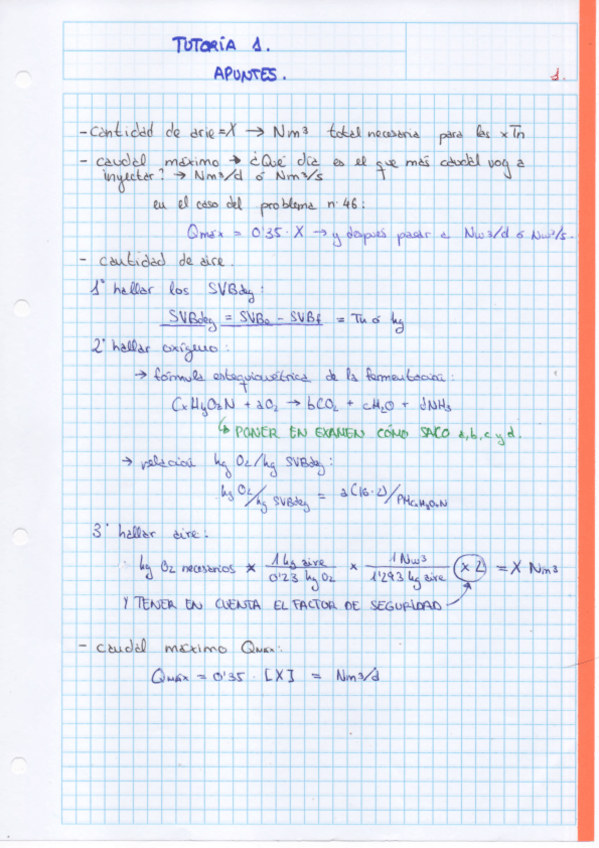 TUTORÍA 1.
APUNTES.
1.
- Cantidad de arie = X → Nm³ total necesaria para las x Tn
- caudal máximo → ¿Qué día es el que más caudal voy a
inyectar? → Nm³/d ó Nm³/s
en el caso del problema nº 46:
Qmáx = 0'35 · X → y después pasar a Nm³/d ó Nm³/s.
- cantidad de aire.
1º hallar los SVBdeg:
SVBdeg = SVB₀ - SVBf = Tn ó kg
2º hallar oxígeno:
→ fórmula estequiométrica de la fermentación:
CxHyOzN + aO₂ → bCO₂ + cH₂O + dNH₃
↳ PONER EN EXAMEN CÓMO SACO a, b, c y d.
→ relación kg O₂/kg SVBdeg:
kg O₂/kg SVBdeg = a(16·2)/PMCxHyOzN
3º hallar aire:
kg O₂ necesarios * 1 kg aire / 0'23 kg O₂ * 1 Nm³ / 1'293 kg aire (x 2) = X Nm³
Y TENER EN CUENTA EL FACTOR DE SEGURIDAD
- caudal máximo Qmáx:
Qmáx = 0'35 · [X] = Nm³/d